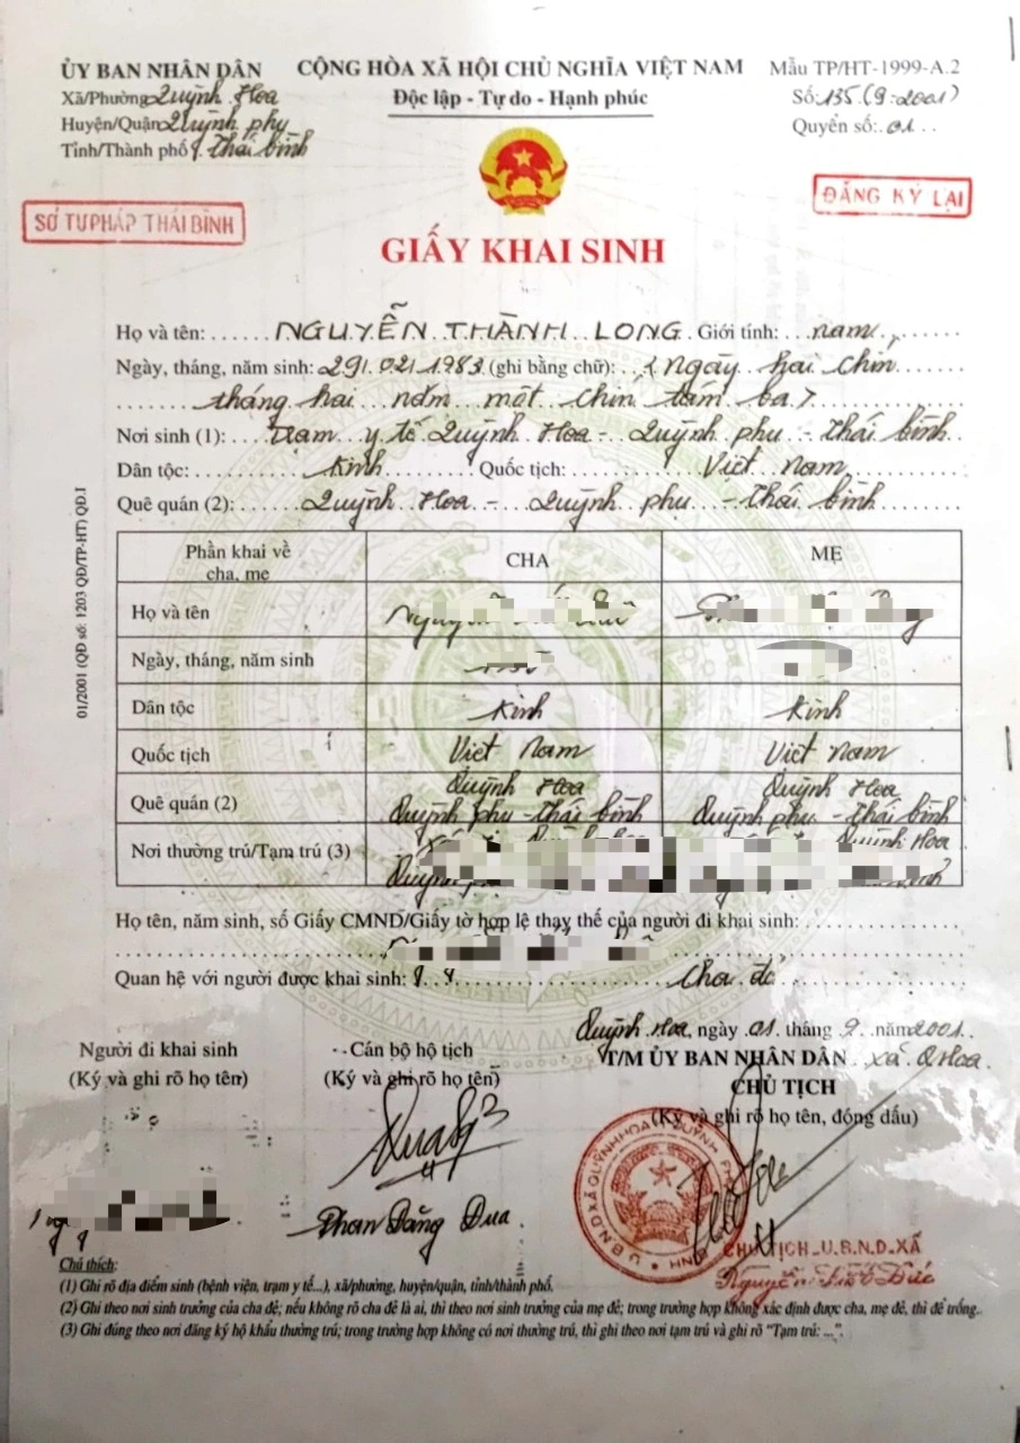 ỦY BAN NHÂN DÂN
Xã/Phường Quỳnh Hoa
Huyện/Quận Quỳnh phụ
Tỉnh/Thành phố Thái bình
CỘNG HÒA XÃ HỘI CHỦ NGHĨA VIỆT NAM
Độc lập - Tự do - Hạnh phúc
Mẫu TP/HT-1999-A.2
Số: 135 (9-2001)
Quyển số: 01
SỞ TƯ PHÁP THÁI BÌNH
ĐĂNG KÝ LẠI
GIẤY KHAI SINH
Họ và tên: NGUYỄN THÀNH LONG Giới tính: nam
Ngày, tháng, năm sinh: 29/02/1983 (ghi bằng chữ): ( Ngày hai chín
tháng hai năm một chín tám ba )
Nơi sinh (1): Trạm y tế Quỳnh Hoa - Quỳnh phụ - Thái bình
Dân tộc: Kinh Quốc tịch: Việt Nam
Quê quán (2): Quỳnh Hoa - Quỳnh phụ - Thái bình
01/2001 (QĐ số: 1203 QĐ/TP-HT) QĐ.I
Phần khai về
cha, mẹ
CHA
MẸ
Họ và tên
Ngày, tháng, năm sinh
Dân tộc Kinh Kinh
Quốc tịch Việt Nam Việt Nam
Quê quán (2)
Quỳnh Hoa
Quỳnh phụ - Thái bình
Quỳnh Hoa
Quỳnh phụ - Thái bình
Nơi thường trú/Tạm trú (3)
Quỳnh Hoa
Họ tên, năm sinh, số Giấy CMND/Giấy tờ hợp lệ thay thế của người đi khai sinh:
Quan hệ với người được khai sinh: Cha đẻ
Quỳnh Hoa, ngày 01 tháng 9 năm 2001
T/M ỦY BAN NHÂN DÂN xã Q Hoa
CHỦ TỊCH
(Ký và ghi rõ họ tên, đóng dấu)
Người đi khai sinh
(Ký và ghi rõ họ tên)
Cán bộ hộ tịch
(Ký và ghi rõ họ tên)
Phan Đăng Dua
U.B.N.D XÃ QUỲNH HOA
CHỦ TỊCH U.B.N.D XÃ
Chú thích:
(1) Ghi rõ địa điểm sinh (bệnh viện, trạm y tế...), xã/phường, huyện/quận, tỉnh/thành phố.
(2) Ghi theo nơi sinh trưởng của cha đẻ; nếu không rõ cha đẻ là ai, thì theo nơi sinh trưởng của mẹ đẻ; trong trường hợp không xác định được cha, mẹ đẻ, thì để trống.
(3) Ghi đúng theo nơi đăng ký hộ khẩu thường trú; trong trường hợp không có nơi thường trú, thì ghi theo nơi tạm trú và ghi rõ "Tạm trú: ...".